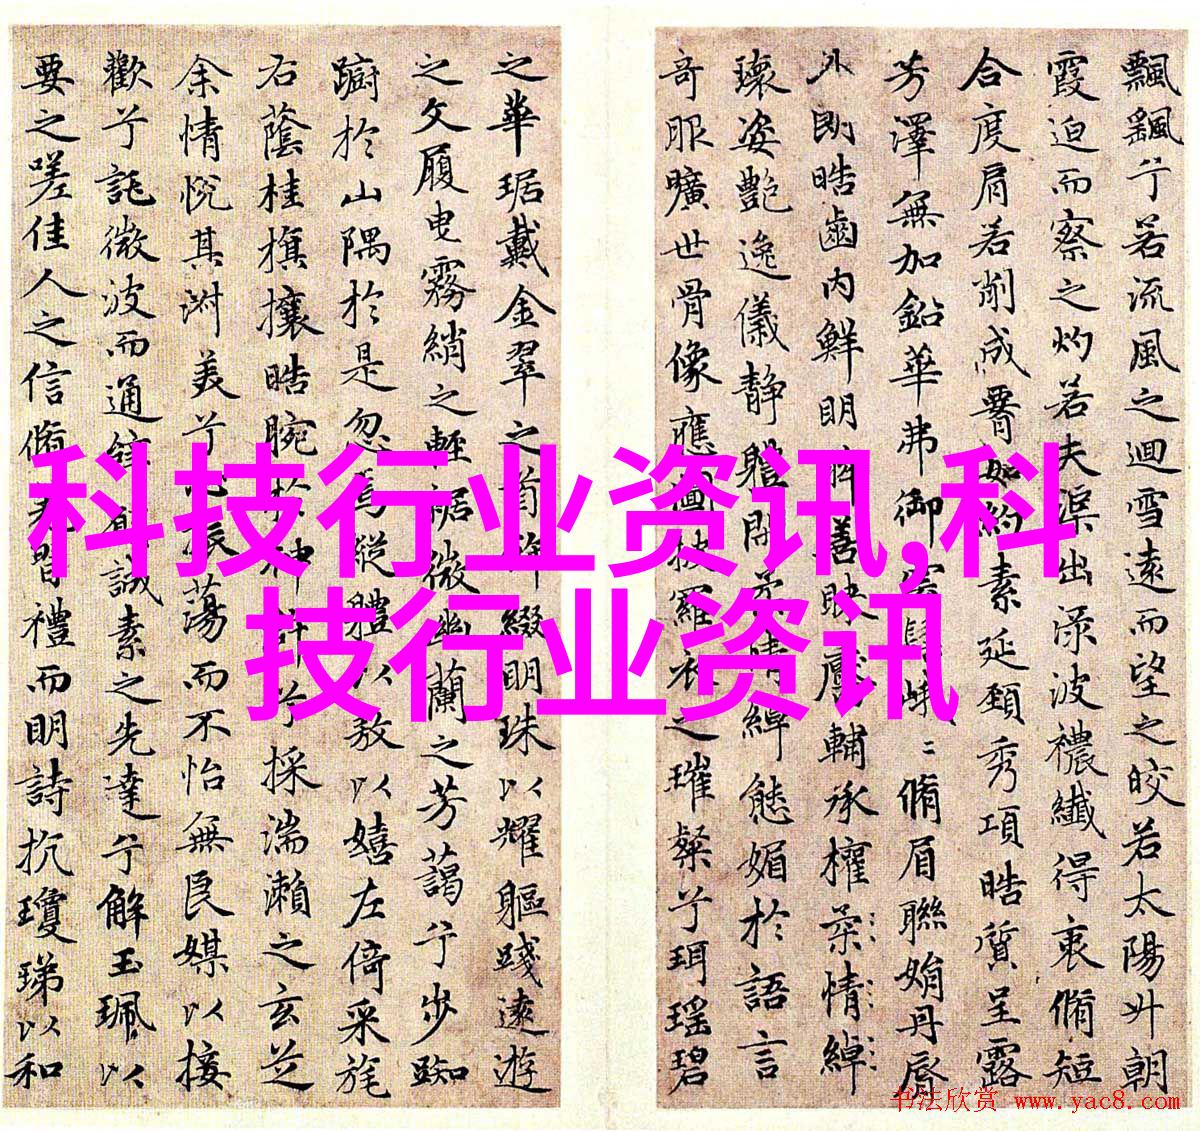 飄飖兮若流風之迴雪遠而望之皎若太陽升朝
霞迫而察之灼若夫渠出渌波禯纖得衷脩短
合度肩若削成腰如約素延頸秀項皓質呈露
芳澤無加鉛華弗御峨脩眉聯娟丹脣
外朗皓齒内鮮明眸善睞靨輔承權柔情綽
瓌姿艷逸儀静體閑柔情綽態媚於語言
奇服曠世骨像應圖披羅衣之璀粲兮珥瑶碧
之華琚戴金翠之首飾綴明珠以耀軀踐遠遊
之文履曳霧綃之輕裾微幽蘭之芳藹兮步踟
躕於山隅於是忽焉縱體以敖以嬉左倚采旄
右蔭桂旗攘皓腕於神滸兮採湍瀨之玄芝
余情悅其淑美兮心振蕩而不怡無良媒以接
歡兮託微波而通誠素之先達兮解玉珮以
要之嗟佳人之信脩習禮而明詩抗瓊珶以和
科技行业资讯,科
技行业资讯
书法欣赏 www.yac8.com